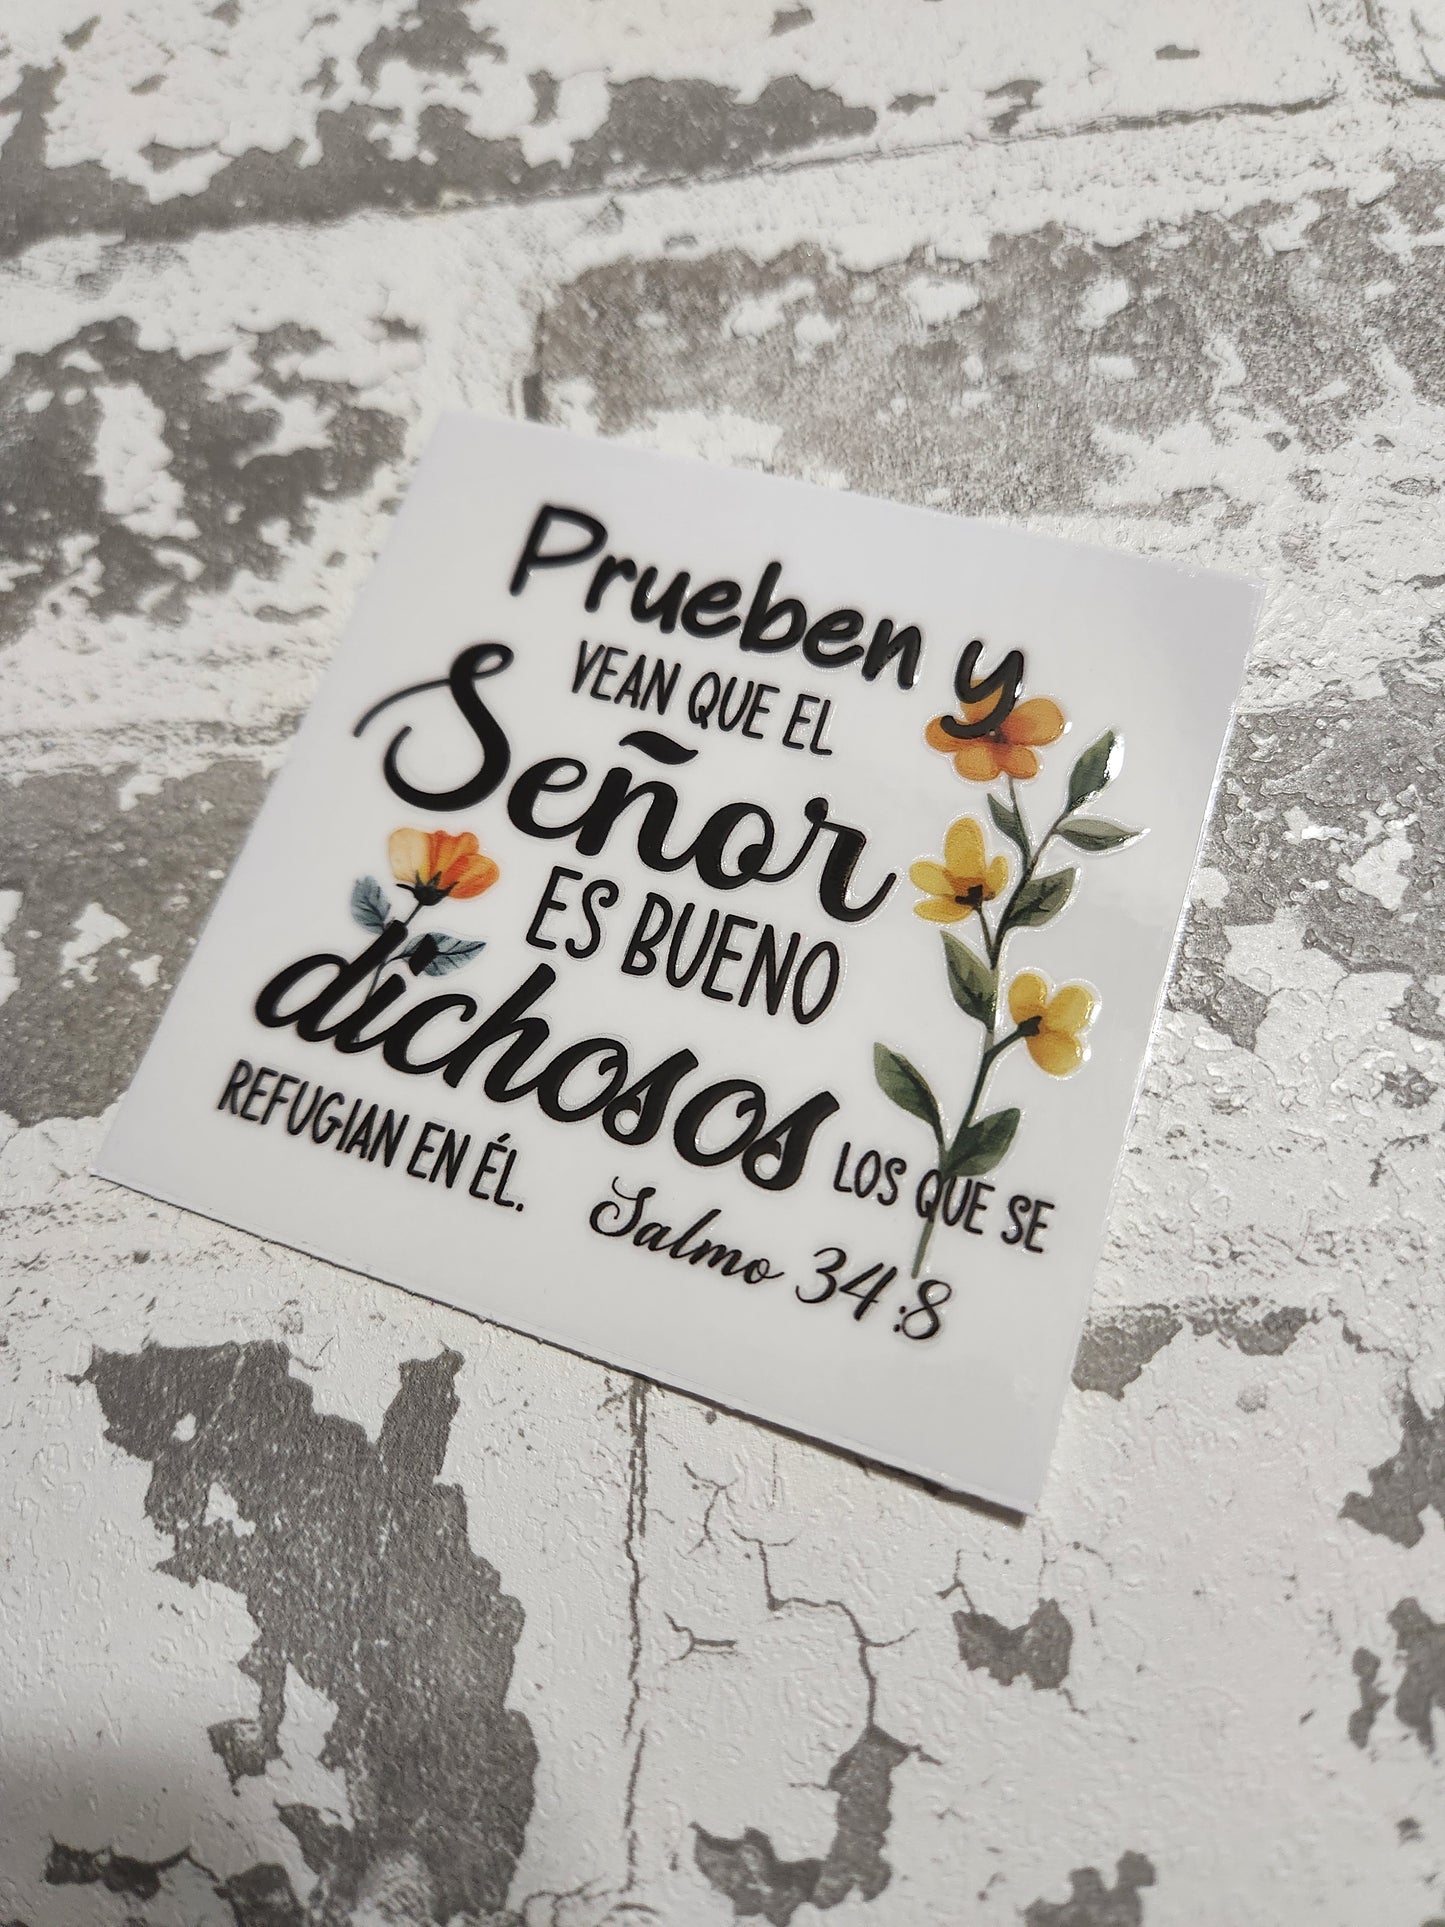 Prueben y
VEAN QUE EL
Señor
ES BUENO
dichosos LOS QUE SE
REFUGIAN EN ÉL.
Salmo 34:8